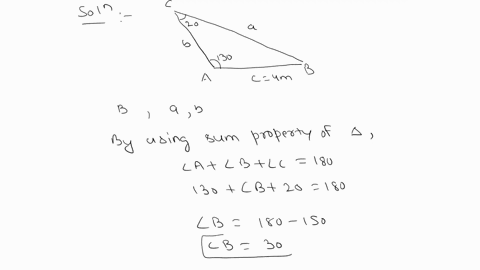 Solⁿ :-
C
20
a
b
130
A
c=4m
B
B , a , b
By using sum property of Δ,
∠A + ∠B + ∠C = 180
130 + ∠B + 20 = 180
∠B = 180 - 150
∠B = 30